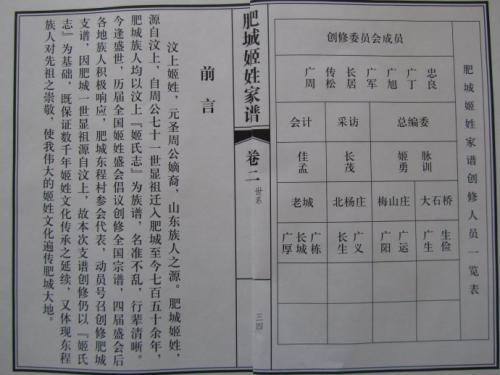 肥城姬姓家谱创修人员一览表
创修委员会成员
广周 传松 长居 广军 广旭 广丁 忠良
会计 采访 总编委
佳孟 长茂 姬勇 脉训
老城 北杨庄 梅山庄 大石桥
广厚 长城 广栋 长生 广义 广阳 广远 广生 生俭
肥城姬姓家谱
卷二
世系
三四
前言
汶上姬姓，元圣周公嫡裔，山东族人之源。肥城姬姓，
源自汶上，自周公七十一世显祖迁入肥城至今七百五十余年，
肥城族人均以汶上『姬氏志』为族谱，名准不乱，行辈清晰。
今逢盛世，历届全国姬姓盛会倡议创修全国宗谱，四届盛会后
各地族人积极响应，肥城东程村参会代表，动员号召创修肥城
支谱，因肥城一世显祖源自汶上，故本次支谱创修仍以『姬氏
志』为基础，既保证数千年姬姓文化传承之延续，又体现东程
族人对先祖之崇敬，使我伟大的姬姓文化遍传肥城大地。